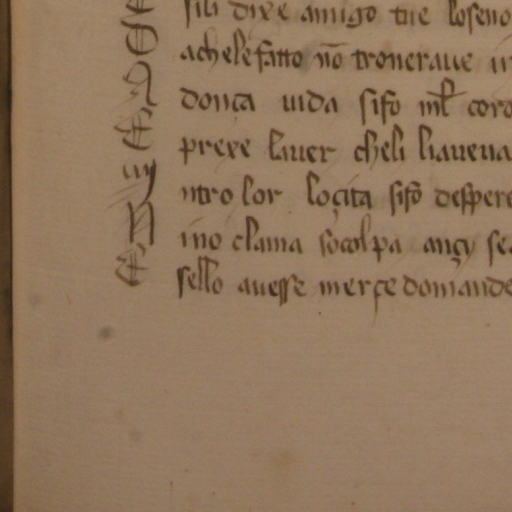 E sili dixe amigo tue loseno
O achele fatto nō troneraue
A donça uida sifo mł cord
E prexe lauer cheli liaueua
uy ntro lor loçita sifo despere
N ino clama socolpa ançy se
E sello auesse merçe domande